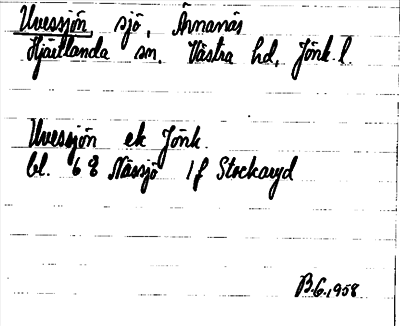 Uvessjön, sjö, Ännanäs
Hjärtlanda sn, Västra hd, Jönk. l.
Uvessjön ek Jönk.
bl. 68 Nässjö 1f Stockaryd
B.G. 1958